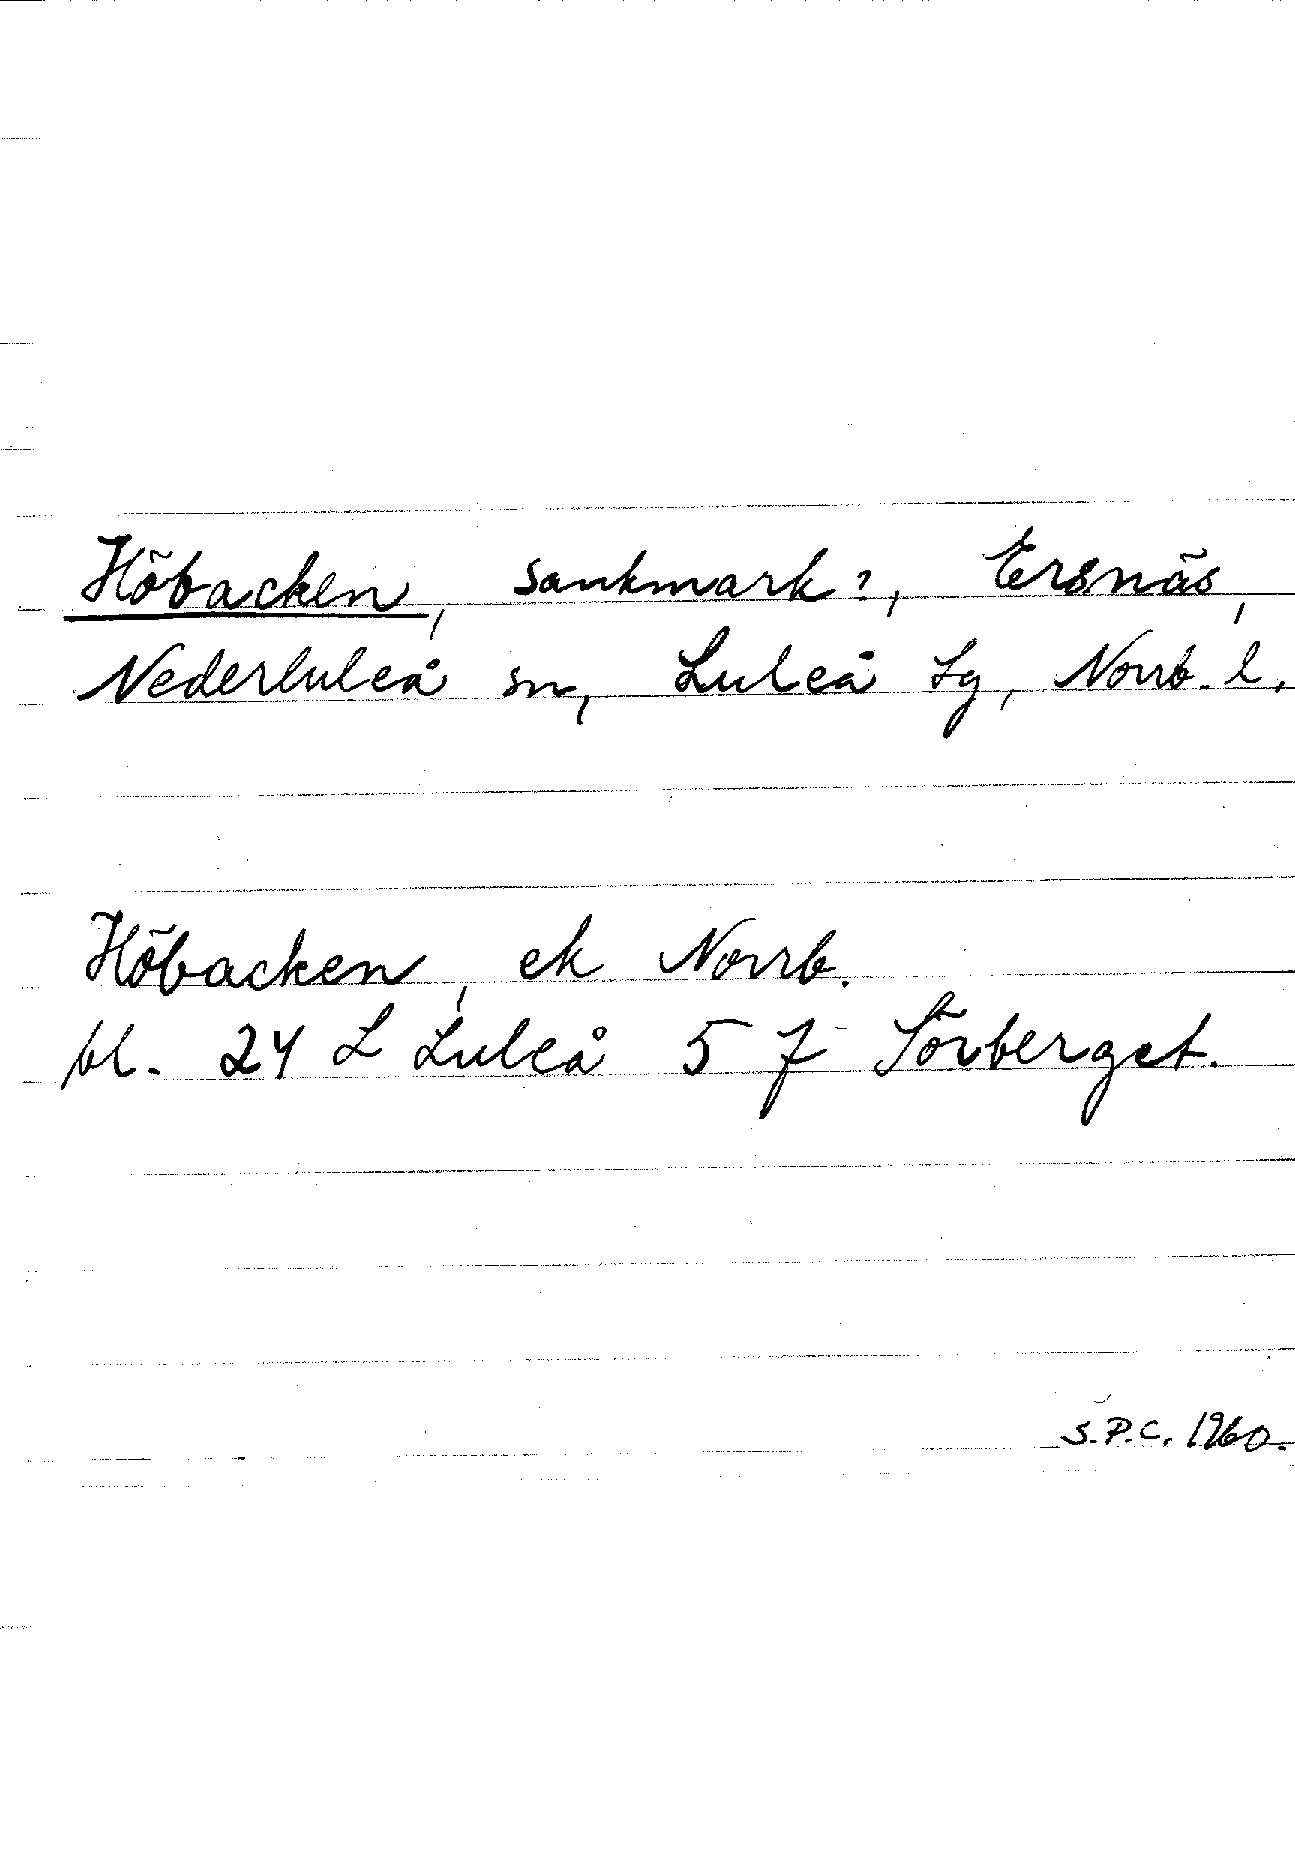 Höbacken, sankmark?, Ersnäs,
Nederluleå sn, Luleå lg, Norrb. l.
Höbacken, ek Norrb.
bl. 24 L Luleå 5 f Sörberget.
S.P.C. 1960.